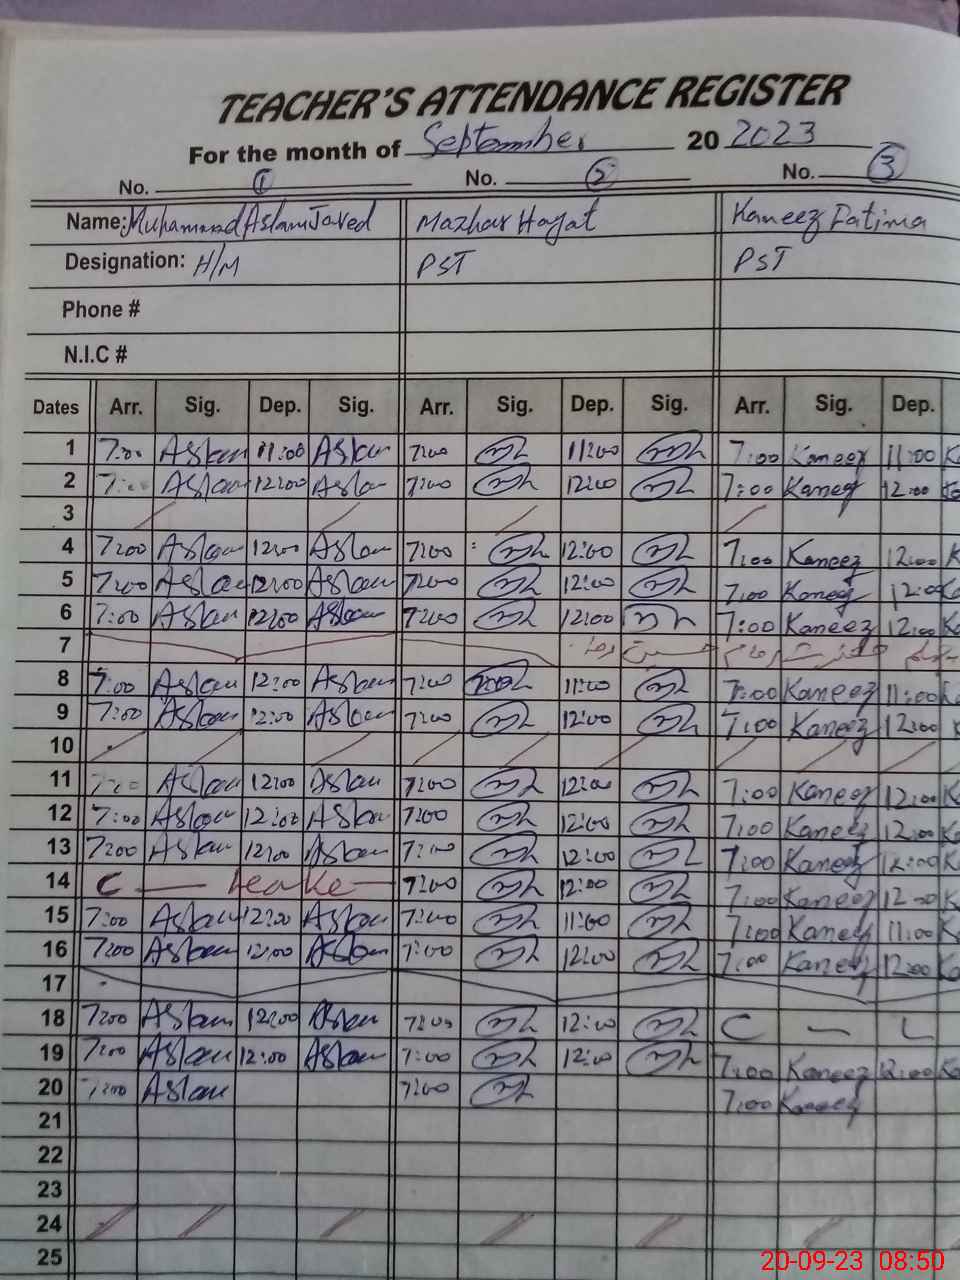 TEACHER'S ATTENDANCE REGISTER
For the month of September 20 2023
No. 1 No. 2 No. 3
Name: Muhammad Aslam Javed Mazhar Hayat Kaneez Fatima
Designation: H/M PST PST
Phone #
N.I.C #
Dates Arr. Sig. Dep. Sig. Arr. Sig. Dep. Sig. Arr. Sig. Dep.
1 7:00 Aslam 11:00 Aslam 7:00 11:00 7:00 Kaneez 11:00
2 7:00 Aslam 12:00 Aslam 7:00 12:00 7:00 Kaneez 12:00
3
4 7:00 Aslam 12:00 Aslam 7:00 12:00 7:00 Kaneez 12:00
5 7:00 Aslam 12:00 Aslam 7:00 12:00 7:00 Kaneez 12:00
6 7:00 Aslam 12:00 Aslam 7:00 12:00 7:00 Kaneez 12:00
7
8 7:00 Aslam 12:00 Aslam 7:00 11:00 7:00 Kaneez 11:00
9 7:00 Aslam 12:00 Aslam 7:00 12:00 7:00 Kaneez 12:00
10
11 7:00 Aslam 12:00 Aslam 7:00 12:00 7:00 Kaneez 12:00
12 7:00 Aslam 12:00 Aslam 7:00 12:00 7:00 Kaneez 12:00
13 7:00 Aslam 12:00 Aslam 7:00 12:00 7:00 Kaneez 12:00
14 C — Leave — 7:00 12:00 7:00 Kaneez 12:00
15 7:00 Aslam 12:00 Aslam 7:00 11:00 7:00 Kaneez 11:00
16 7:00 Aslam 12:00 Aslam 7:00 12:00 7:00 Kaneez 12:00
17
18 7:00 Aslam 12:00 Aslam 7:00 12:00 C — L
19 7:00 Aslam 12:00 Aslam 7:00 12:00 7:00 Kaneez 12:00
20 7:00 Aslam 7:00 7:00 Kaneez
21
22
23
24
25
20-09-23 08:50